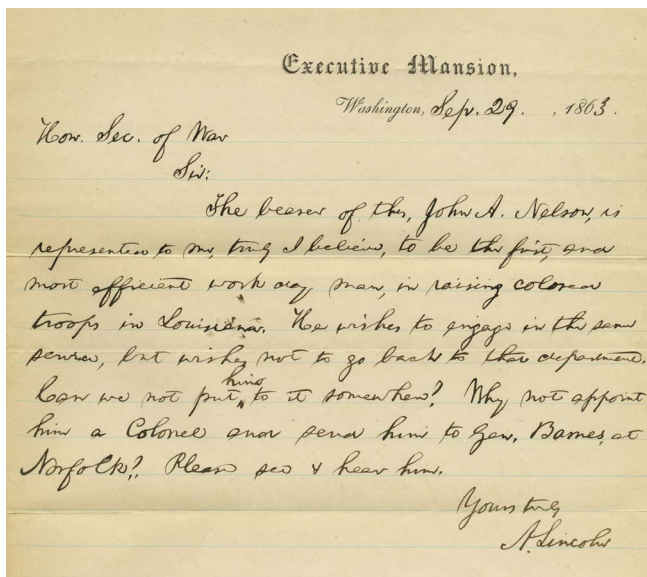 Executive Mansion,
Washington, Sep. 29. , 1863.
Hon. Sec. of War
Sir:
The bearer of this, John A. Nelson, is
represented to me, truly I believe, to be the first, and
most efficient work day man, in raising colored
troops in Louisiana. He wishes to engage in the same
service, but wishes not to go back to that department.
him
Can we not put ^ to it somewhere? Why not appoint
him a Colonel and send him to Gen. Barnes, at
Norfolk? Please see & hear him.
Yours truly
A. Lincoln